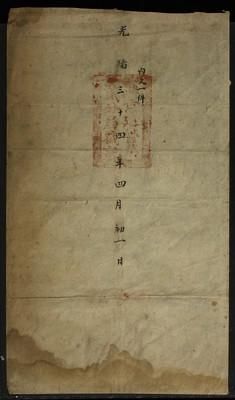 光緒三十四年四月初一日
內文一件